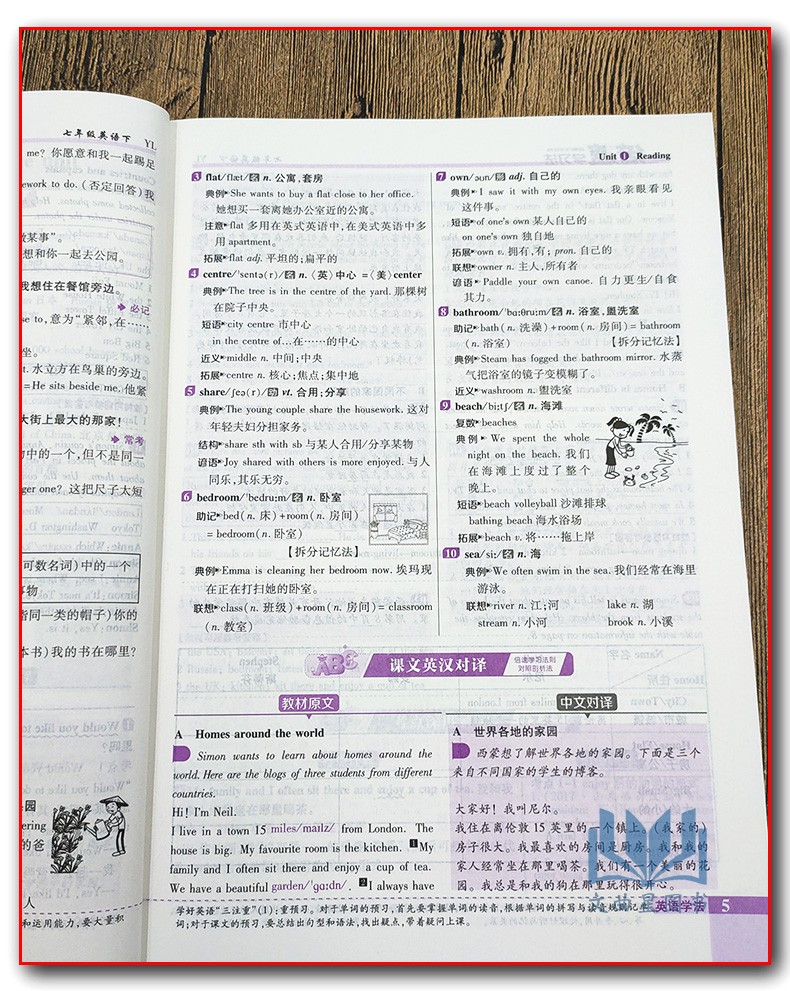 七年级英语下 YL
me? 你愿意和我一起踢足
ework to do. (否定回答) 我
做某事”。
想和你一起去公园。
我想住在餐馆旁边。
必记
se to, 意为“紧邻,在……
坐。
t. 水立方在鸟巢的旁边。
=He sits beside me. 他紧
大街上最大的那家!
常考
物中的一个,但不是同一
ger one? 这把尺子太短
可数名词) 中的一个
事物
指同一类的帽子) 你的
本书) 我的书在哪里?
园
ering
的爸
人
和运用能力,要大量积
Unit 1 Reading
3 flat/flæt/名 n. 公寓,套房
典例 She wants to buy a flat close to her office.
她想买一套离她办公室近的公寓。
注意 flat 多用在英式英语中,在美式英语中多
用 apartment。
拓展 flat adj. 平坦的;扁平的
4 centre/ˈsentə(r)/名 n.〈英〉中心 =〈美〉center
典例 The tree is in the centre of the yard. 那棵树
在院子中央。
短语 city centre 市中心
in the centre of…在……的中心
近义 middle n. 中间;中央
拓展 centre n. 核心;焦点;集中地
5 share/ʃeə(r)/动 vt. 合用;分享
典例 The young couple share the housework. 这对
年轻夫妇分担家务。
结构 share sth with sb 与某人合用/分享某物
谚语 Joy shared with others is more enjoyed. 与人
同乐,其乐无穷。
6 bedroom/ˈbedruːm/名 n. 卧室
助记 bed(n. 床)+room(n. 房间)
=bedroom(n. 卧室)
【拆分记忆法】
典例 Emma is cleaning her bedroom now. 埃玛现
在正在打扫她的卧室。
联想 class(n. 班级)+room(n. 房间)= classroom
(n. 教室)
7 own/əʊn/形 adj. 自己的
典例 I saw it with my own eyes. 我亲眼看见
这件事。
短语 of one's own 某人自己的
on one's own 独自地
拓展 own v. 拥有,有; pron. 自己的
联想 owner n. 主人,所有者
谚语 Paddle your own canoe. 自力更生/自食
其力。
8 bathroom/ˈbɑːθruːm/名 n. 浴室,盥洗室
助记 bath(n. 洗澡)+room(n. 房间)= bathroom
(n. 浴室) 【拆分记忆法】
典例 Steam has fogged the bathroom mirror. 水蒸
气把浴室的镜子变模糊了。
近义 washroom n. 盥洗室
9 beach/biːtʃ/名 n. 海滩
复数 beaches
典例 We spent the whole
night on the beach. 我们
在海滩上度过了整个
晚上。
短语 beach volleyball 沙滩排球
bathing beach 海水浴场
拓展 beach v. 将……拖上岸
10 sea/siː/名 n. 海
典例 We often swim in the sea. 我们经常在海里
游泳。
联想 river n. 江;河 lake n. 湖
stream n. 小河 brook n. 小溪
ABC 课文英汉对译 倍速学习法则 对照图析法
教材原文
A Homes around the world
Simon wants to learn about homes around the
world. Here are the blogs of three students from different
countries.
Hi! I'm Neil.
I live in a town 15 miles/maɪlz/ from London. The
house is big. My favourite room is the kitchen. 1My
family and I often sit there and enjoy a cup of tea.
We have a beautiful garden/ˈɡɑːdn/. 2I always have
中文对译
A 世界各地的家园
西蒙想了解世界各地的家园。下面是三个
来自不同国家的学生的博客。
大家好!我叫尼尔。
我住在离伦敦 15 英里的一个镇上。(我家的)
房子很大。我最喜欢的房间是厨房。我和我的
家人经常坐在那里喝茶。我们有一个美丽的花
园。我总是和我的狗在那里玩得很开心。
学好英语“三注重”(1):重预习。对于单词的预习,首先要掌握单词的读音,根据单词的拼写与读音规则记单
词;对于课文的预习,要总结出句型和语法,找出疑点,带着疑问上课。
英语学法 5